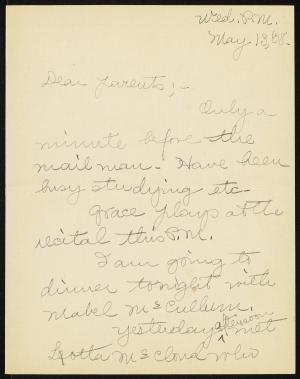 Wed. P.M.
May 13, '08.
Dear Parents;-
Only a
minute before the
mail man. Have been
busy studying etc.
Grace plays at the
recital this P.M.
I am going to
dinner tonight with
Mabel McCullum.
Yesterday afternoon met
Lotta McCloud who